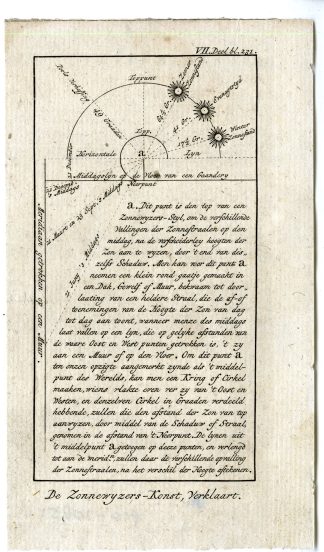 VII. Deel bl. 231.
Toppunt
Zomer
Zonnestand
Evennagts
Winter
Zonnestand
Pools
49 Graaden
Topp.
41 Gr.
a
Horizontale
Lyn
Middaglyn op de Vloer van een Gaandery
Neerpunt
Meridiaan getrokken op een Muur.
a. Dit punt is den top van een
Zonnewyzers-Styl, om de verschillende
Vallingen der Zonnestraalen op den
middag, na de verscheiderley hoogten der
Zon aan te wyzen, door 't end van des-
zelfs Schaduw. Men kan voor dit punt a
neemen een klein rond gaatje gemaakt in
een Dak, Gewelf of Muur, bekwaam tot door-
laating van een heldere Straal, die de af-of
toeneemingen van de Hoogte der Zon van dag
tot dag aan toont, wanneer menze des middags
laat vallen op een Lyn, die op gelyke afstanden van
de waare Oost en West punten getrokken is, 't zy
aan een Muur of op den Vloer. Om dit punt a
ten onzen opzigte aangemerkt zynde als 't middel-
punt des Werelds, kan men een Kring of Cirkel
maaken, wiens vlakte even ver zy van 't Oost en
Westen, en denzelven Cirkel in Graaden verdeeld
hebbende, zullen die den afstand der Zon van top
aanwyzen, door middel van de Schaduw of Straal,
genomen in de afstand van 't Neerpunt. De lynen uit
't middelpunt a getoogen op deeze punten, en verlengd
tot aan de merid.ⁿ, zullen daar de verschillende opvalling
der Zonnestraalen, na het verschil der Hoogte aftekenen.
De Zonnewyzers-Konst, Verklaart.